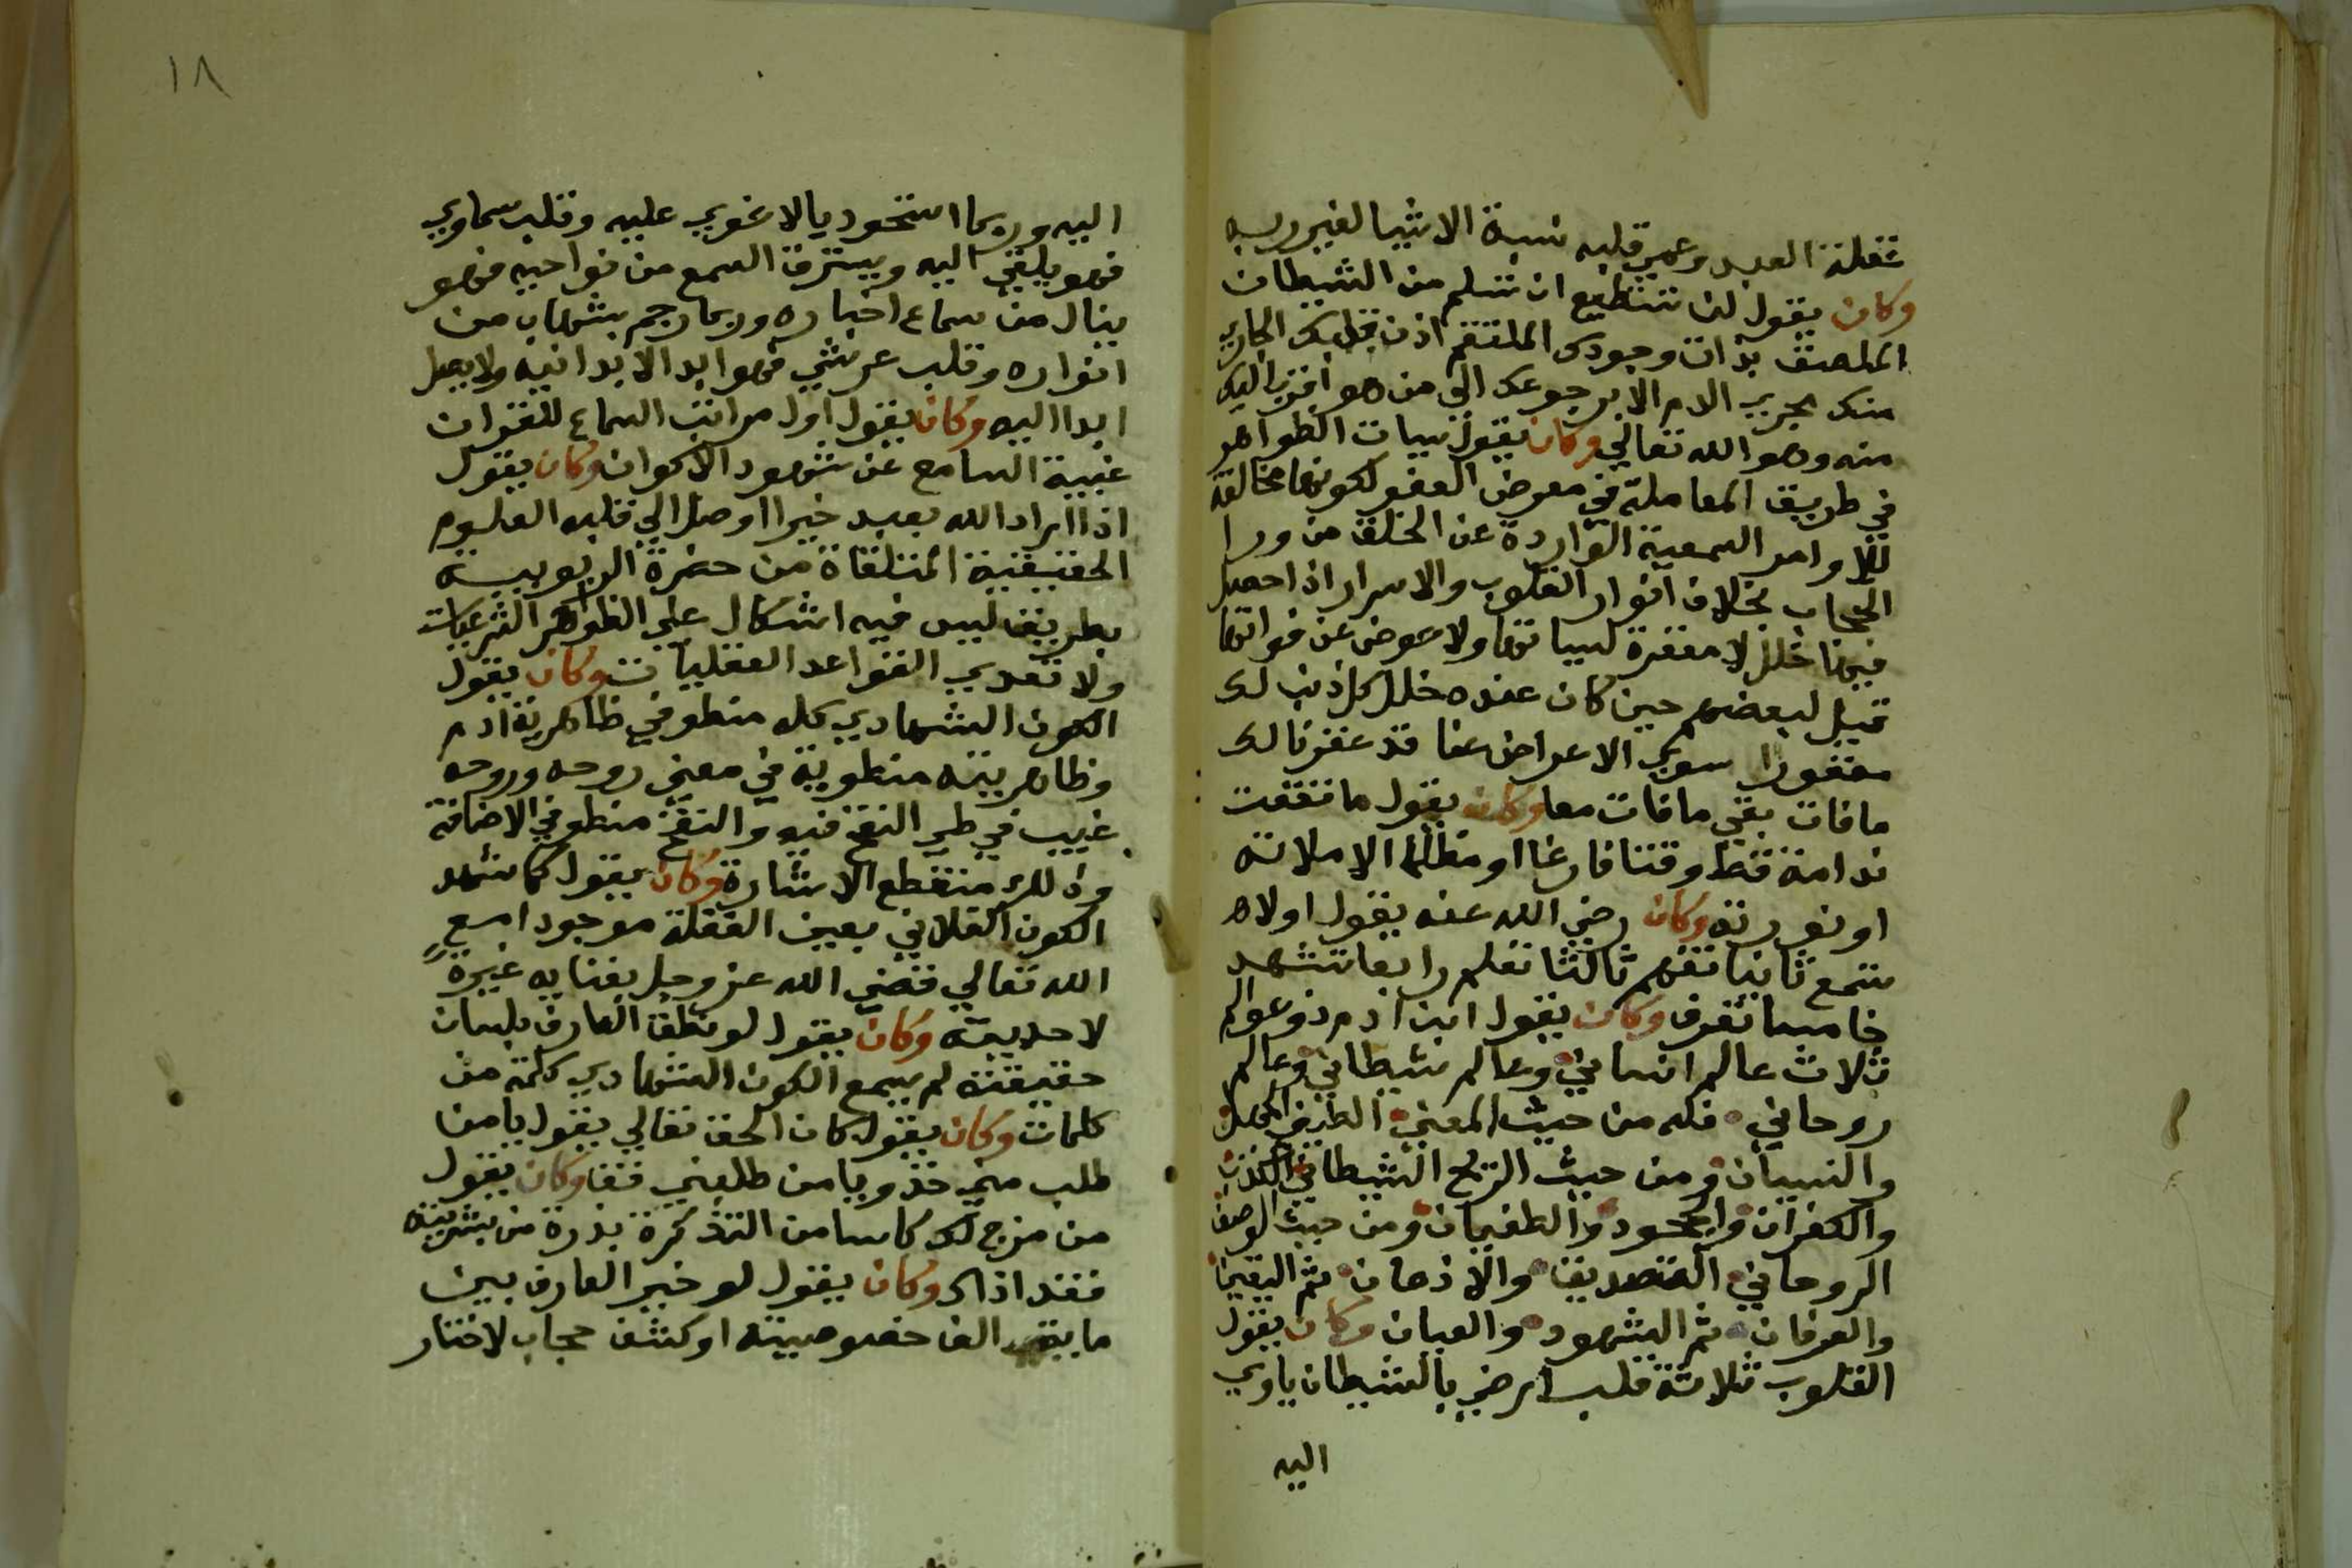 غفلة العبد وعمر قلبه نسبة الاشيا لغير ربه
وكان يقول لن تستطيع ان تسلم من الشيطان
الملصق بذات وجودك الملتقم اذن قلبك الجاري
منك مجري الدم الا برجوعك الي من هو اقرب اليك
منه وهو الله تعالي وكان يقول سيات الظواهر
في طريق المعاملة في معرض العفو لكونها مخالفة
للاوامر السمعية الواردة عن الخلق من ورا
الحجاب بخلاف انوار القلوب والاسرار اذا حصل
فيها خلل لا مغفرة لسياتها ولا عوض عن فواتها
قيل لبعضهم حين كان عنده خلل كل ذنب لك
مغفورا سوي الاعراض عنا قد غفرنا لك
ما فات بقي ما فات معا وكان يقول ما نفقت
ندامة قط وقتا فارغا او مظلما الا ملاته
او نورته وكان رضي الله عنه يقول اولاه
تسمع ثانيا تفهم ثالثا تعلم رابعا تشهد
خامسا تعرف وكان يقول ابن ادم ذو عوالم
ثلاث عالم انساني وعالم شيطاني وعالم
روحاني فله من حيث المعني الطيني الجهل
والنسيان ومن حيث الشيطاني الكذب
والكفران والجحود والطغيان ومن حيث الوصف
الروحاني التصديق والاذعان ثم اليقين
والعرفان ثم الشهود والعيان وكان يقول
القلوب ثلاثة قلب ارضي بالشيطان ياوي
اليه
١٨
اليه وربما استحوذ بالاغوي عليه وقلب سماوي
فهو يلقي اليه ويسترق السمع من نواحيه فهو
ينال من سماع اخباره وربما رجم بشهاب من
انواره وقلب عرشي فهو ابد الا يدانيه ولا يصل
ابدا اليه وكان يقول اول مراتب السماع للقران
غيبة السامع عن شهود الاكوان وكان يقول
اذا اراد الله بعبد خيرا اوصل الي قلبه العلوم
الحقيقية المتلقاة من حضرة الربوبية
بطريق ليس فيه اشكال علي الظواهر الشرعيات
ولا تعدي القواعد العقليات وكان يقول
الكون الشهادي كله منطو في ظاهرية ادم
وظاهريته منطوية في معني روحه وروحه
غيب في طي النفخ فيه والنفخ منطو في الاضافة
وذلك منقطع الاشارة وكان يقول كما شهد
الكون الفلاني بعين الغفلة موجودا مع
الله تعالي قضي الله عز وجل بفنايه غيرة
لاحديته وكان يقول لو نطق العارف بلسان
حقيقته لم يسمع الكون الشهادي كلمة من
كلمات وكان يقول كان الحق تعالي يقول يا من
طلب مني خذ ويا من طلبني قف وكان يقول
من مزج لك كاسا من التذكرة بذرة من بشريته
فقد اذاك وكان يقول لو خير العارف بين
ما الف خصوصيته او كشف حجاب لاختار